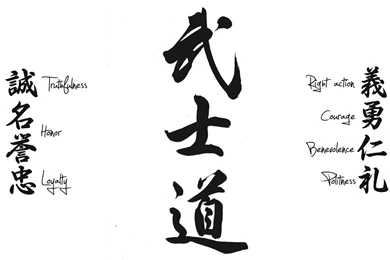 武士道
誠 Truthfulness
名誉 Honor
忠 Loyalty
義 Right action
勇 Courage
仁 Benevolence
礼 Politness